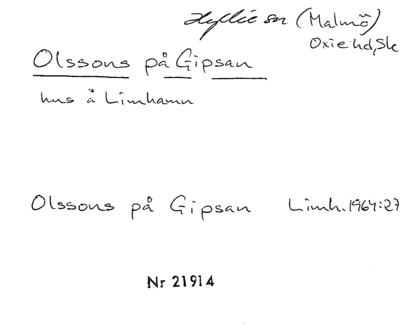 Hyllie sn (Malmö)
Oxie hd, Sk
Olssons på Gipsan
hus å Limhamn
Olssons på Gipsan Limh. 1964:27
Nr 21914